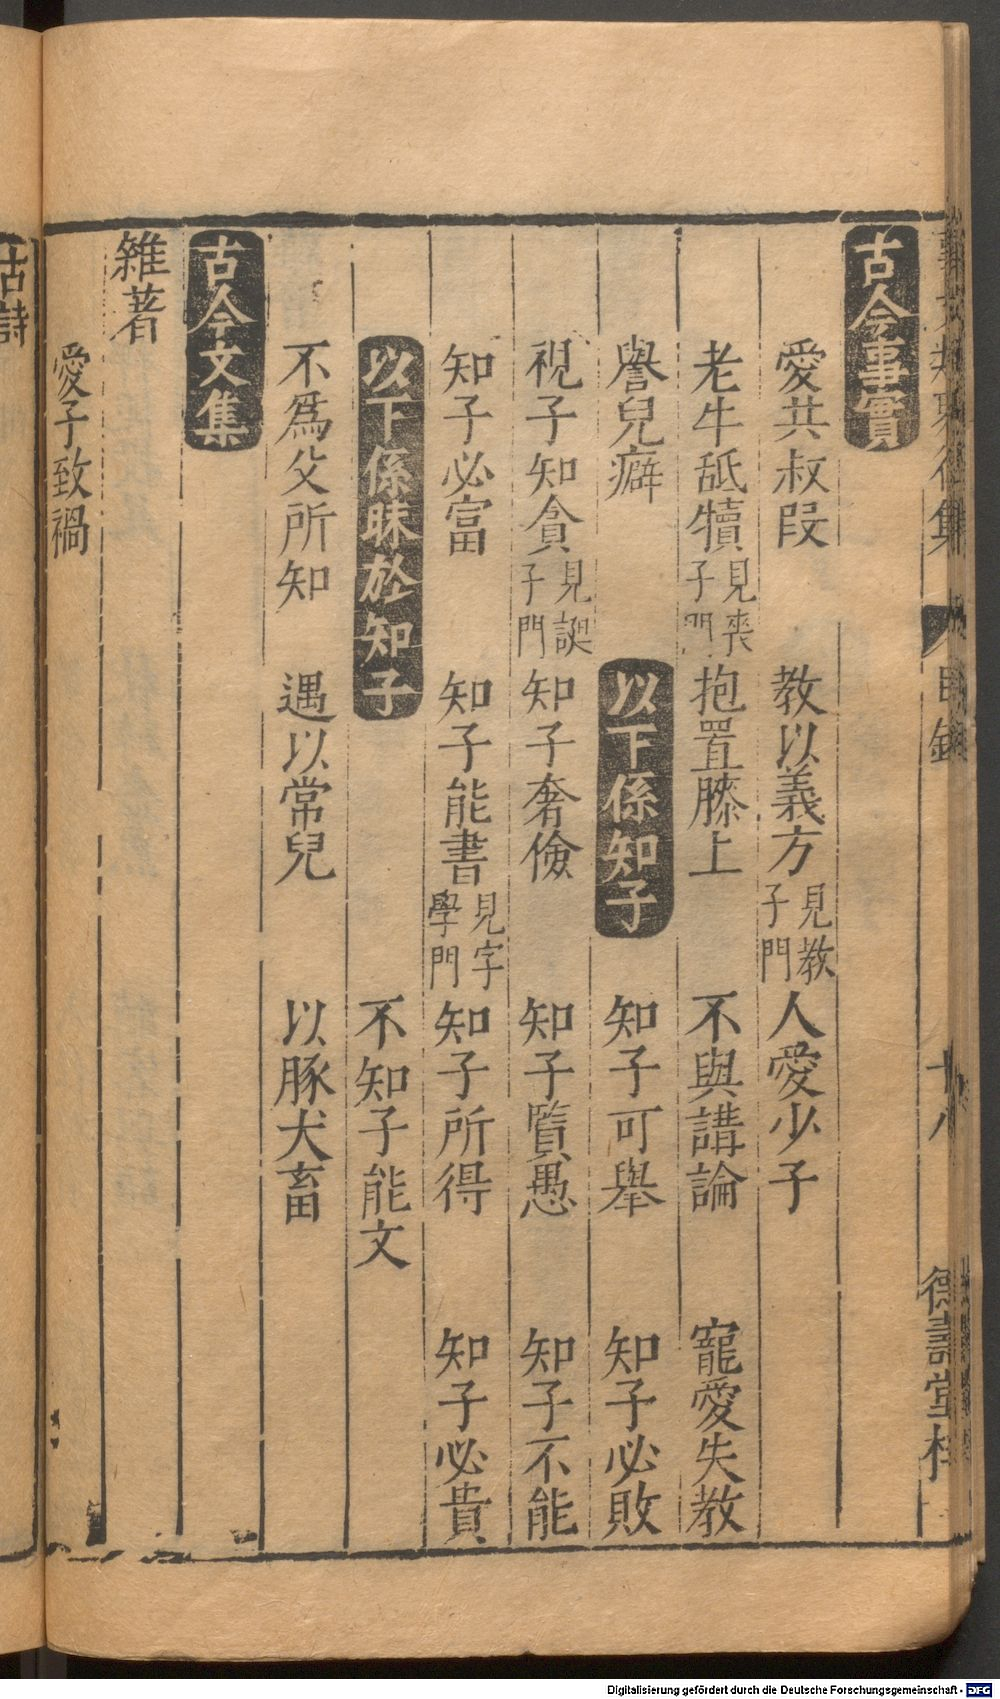 古今事實
愛共叔段　教以義方見教子門　人愛少子
老牛舐犢見喪子門　抱置膝上　不與講論　寵愛失教
譽兒癖　以下係知子　知子可舉　知子必敗
視子知貪見誤子門　知子奢儉　知子賢愚　知子不能
知子必富　知子能書見字學門　知子所得　知子必貴
以下係昧於知子　不知子能文
不爲父所知　遇以常兒　以豚犬畜
古今文集
雜著
愛子致禍
古詩
Digitalisierung gefördert durch die Deutsche Forschungsgemeinschaft - DFG